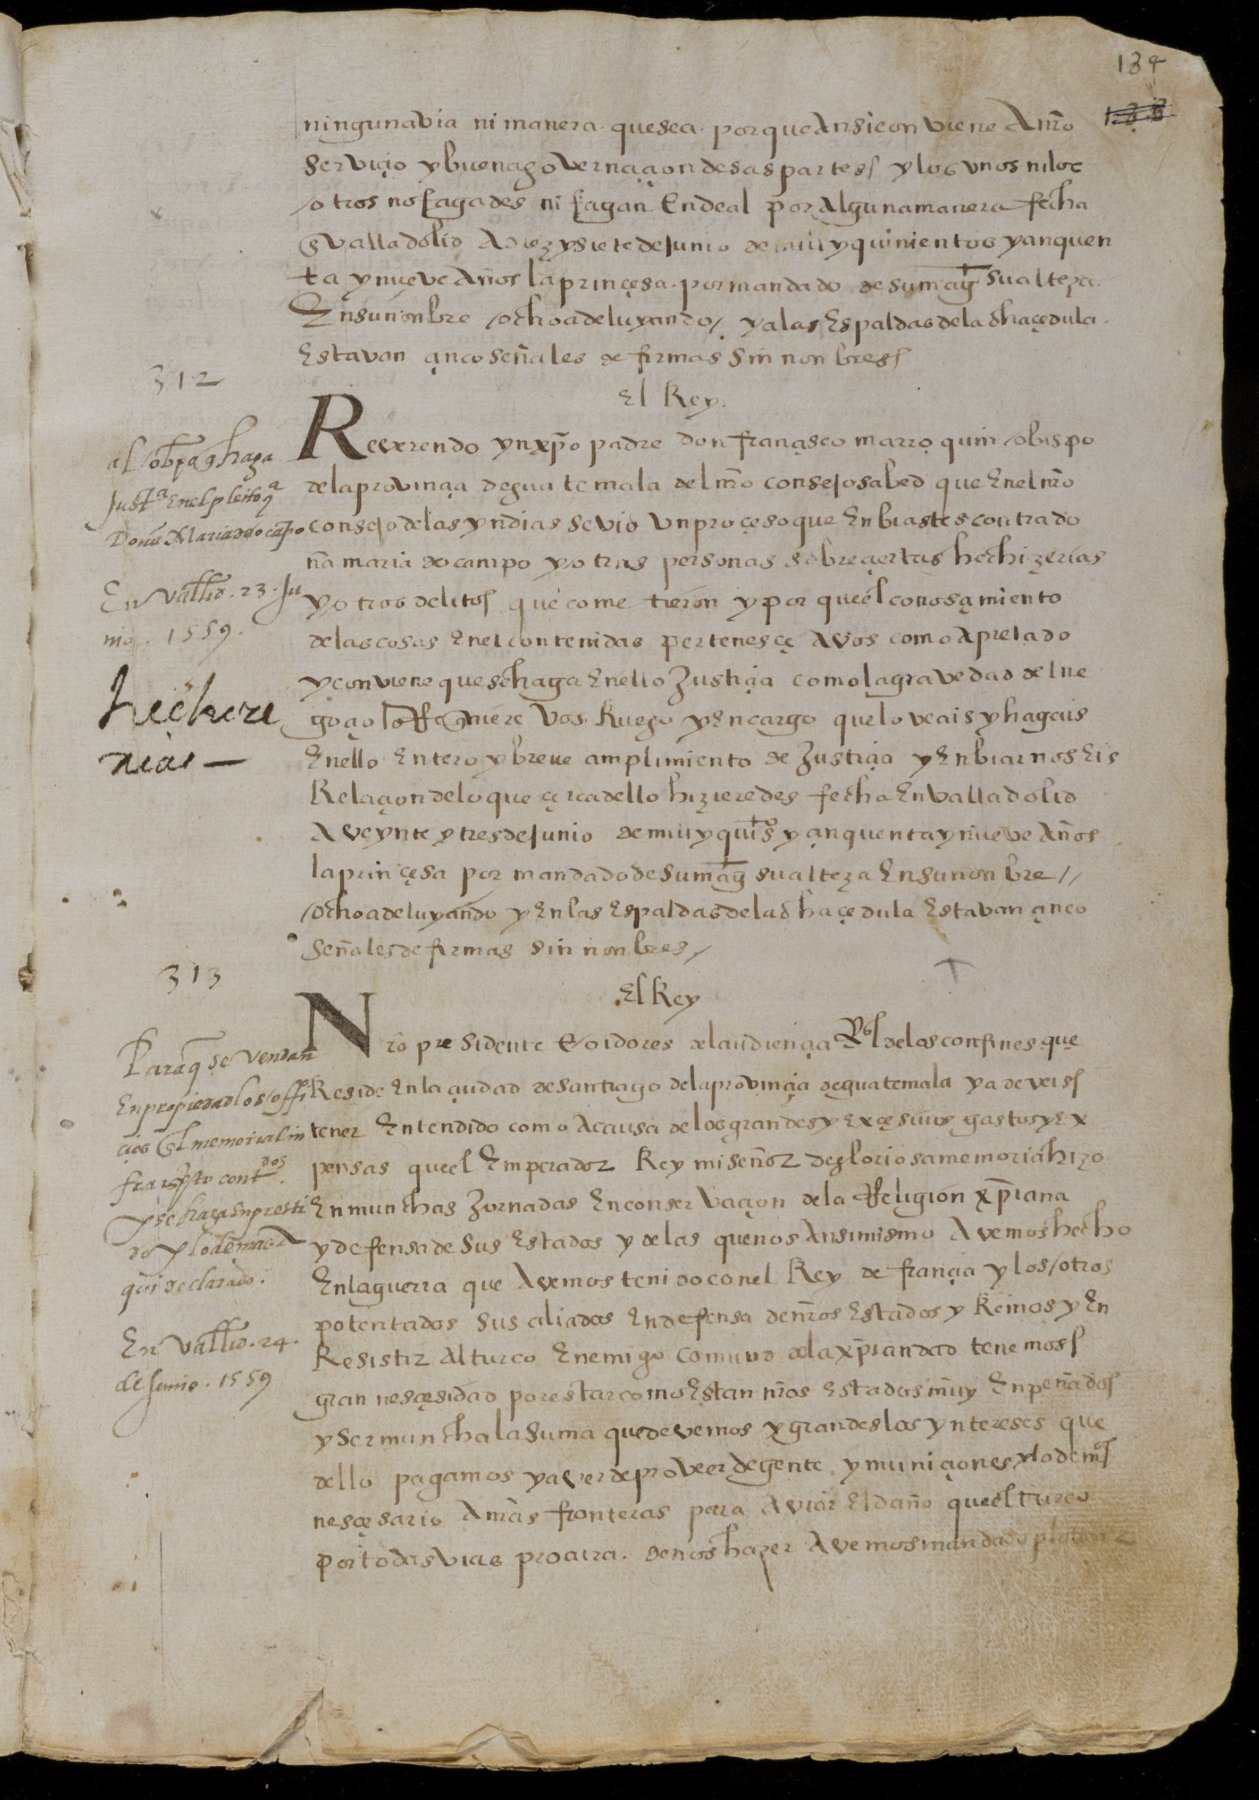 134
ninguna via ni manera que sea porque ansi conviene a nr̃o
serviçio y buena governaçion desas partes y los unos ni los
otros no fagades ni fagan ende al por alguna manera fecha
en valladolid a diez y siete de junio de mill y quinientos y çinquen
ta y nueve años la prinçesa. por mandado de su mag̃ su alteza
En su nonbre ochoa de luyando / y a las Espaldas de la dha çedula
Estavan çinco señales de firmas sin nonbres
312
El Rey.
al obp̃o q̃ haga
just.ª En el pleito q̃
Doña Maria de ocãpo
En Vallid. 23. Ju
nio. 1559.
hechize
rias —
Reverendo yn xp̃o padre don françisco marroquin obispo
de la provinçia de guatemala del nr̃o consejo sabed que En el nr̃o
consejo de las yndias se vio un proçeso que Enbiastes contra do
ña maria de ocampo y otras personas sobre çiertas hechizerias
y otros delitos que cometieron y por que el conosçimiento
de las cosas En el contenidas pertenesçe a vos como a prelado
y conviene que se haga En ello Justiçia como la gravedad del ne
goçio lo Requiere vos Ruego y Encargo que lo veais y hagais
En ello Entero y breve cumplimiento de Justiçia y Enbiarnos Eis
Relaçion de lo que çerca dello hizieredes fecha En valladolid
a veynte y tres de junio de mill y quiº s y çinquenta y nueve años
la prinçesa por mandado de su mag̃ su alteza En su nonbre //
ochoa de luyando y En las Espaldas de la dha çedula Estavan çinco
señales de firmas sin nonbres /
313
El Rey
Para q̃ se vendan
En propiedad los offi
çios En memorial in
fraescripto contdos
y se haga Enpresti
do y lo demas a
qui declarado.
En Vallid. 24.
de Junio. 1559
Nr̃o presidente E oidores de la audiençia Rl de los confines que
Reside En la çiudad de santiago de la provinçia de guatemala ya deveis
tener Entendido como a causa de los grandes y exçesivos gastos y ex
pensas que el Emperador Rey mi señor de gloriosa memoria hizo
En munchas Jornadas En conservaçion de la Religion xp̃iana
y defensa de sus Estados y de las que nos ansimismo avemos hecho
En la guerra que avemos tenido con el Rey de françia y los otros
potentados sus aliados En defensa de nr̃os Estados y Reinos y En
Resistir al turco Enemigo comun de la xp̃iandad tenemos
gran nesçesidad por estar como Estan nr̃os Estados muy Enpeñados
y ser muncha la suma que devemos y grandes los yntereses que
dello pagamos y aver de proveer de gente y muniçiones y lo demas
nesçesario a nr̃as fronteras para aviar El daño que el turco
por todas vias procura de nos hazer avemos mandado